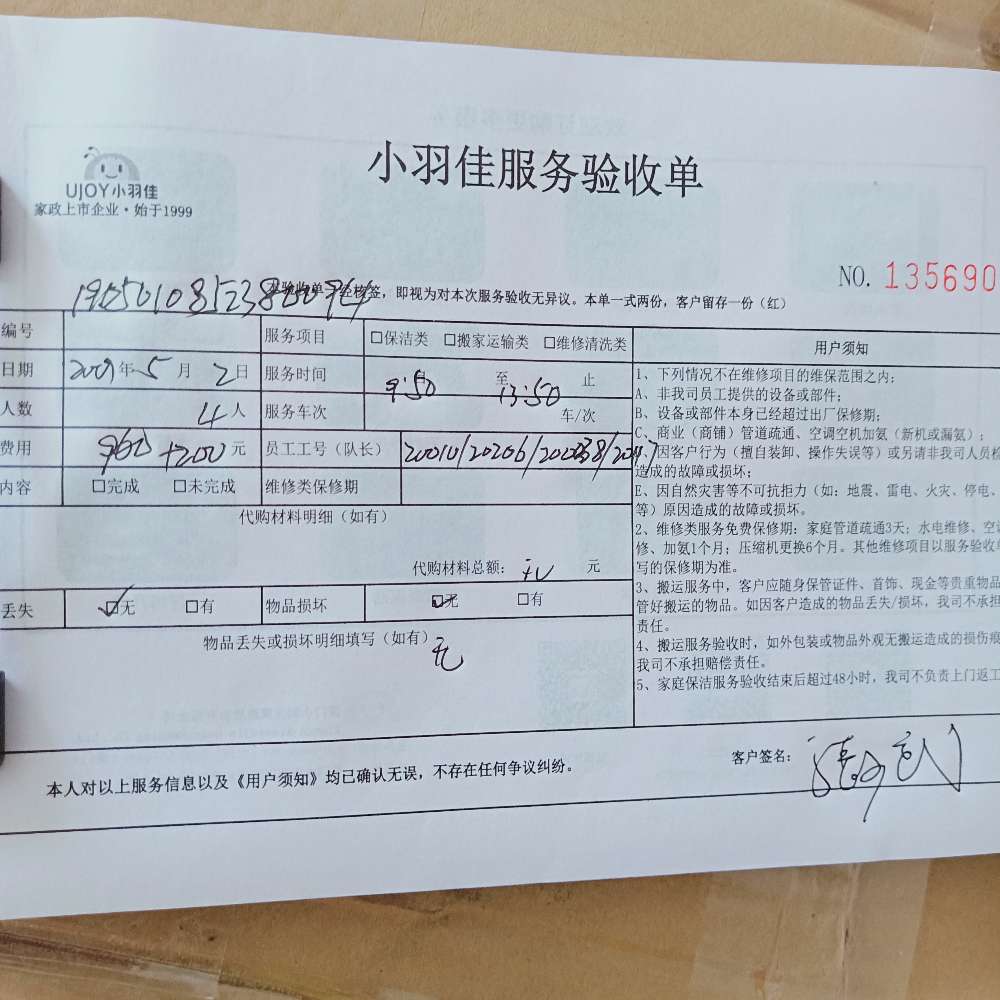 UJOY小羽佳
家政上市企业·始于1999
小羽佳服务验收单
NO. 135690
本验收单一经核签，即视为对本次服务验收无异议。本单一式两份，客户留存一份（红）
编号 服务项目 □保洁类 □搬家运输类 □维修清洗类
日期 年5月2日 服务时间 9:50 至 13:50 止
人数 4人 服务车次 车/次
费用 960+200元 员工工号（队长） 20010/20206/
内容 □完成 □未完成 维修类保修期
代购材料明细（如有）
代购材料总额： 元
丢失 ☑无 □有 物品损坏 ☑无 □有
物品丢失或损坏明细填写（如有） 无
用户须知
1、下列情况不在维修项目的维保范围之内；
A、非我司员工提供的设备或部件；
B、设备或部件本身已经超过出厂保修期；
C、商业（商铺）管道疏通、空调空机加氨（新机或漏氨）；
因客户行为（擅自装卸、操作失误等）或另请非我司人员检
造成的故障或损坏；
E、因自然灾害等不可抗拒力（如：地震、雷电、火灾、停电、
等）原因造成的故障或损坏。
2、维修类服务免费保修期：家庭管道疏通3天；水电维修、空
修、加氨1个月；压缩机更换6个月。其他维修项目以服务验收单
写的保修期为准。
3、搬运服务中，客户应随身保管证件、首饰、现金等贵重物品
管好搬运的物品。如因客户造成的物品丢失/损坏，我司不承担
责任。
4、搬运服务验收时，如外包装或物品外观无搬运造成的损伤痕
我司不承担赔偿责任。
5、家庭保洁服务验收结束后超过48小时，我司不负责上门返工
本人对以上服务信息以及《用户须知》均已确认无误，不存在任何争议纠纷。
客户签名：